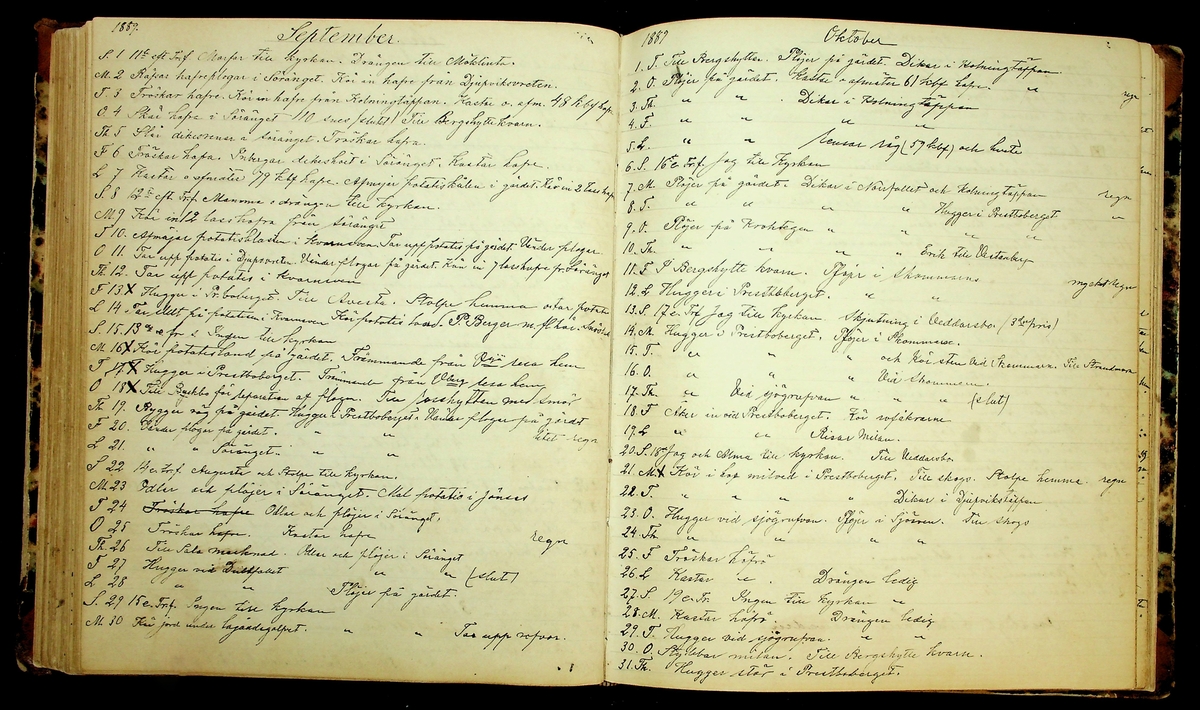 1889.
September.
S. 1 11te eft Tref Morfar till kyrkan. Drängen till Möklinta.
M. 2 Rapar hafreplogar i Söränget. Kör in hafre från Djupviksvreten.
T. 3 Tröskar hafre. Kör in hafre från Kolningtäppan. Kastar o. afm. 48 kbf hafre
O. 4 Skär hafre i Söränget 110 snes (slut) Till Bergshytte kvarn.
Th. 5 Slår dikesrenar i Söränget. Tröskar hafre.
F 6 Tröskar hafre. Inbergar dikeshöet i Söränget. Kastar hafre.
L 7 Kastar o afmäter 79 kbf hafre. Afmejar potatiskålen i gärdet. Kör in 2 lass hafre
S. 8 12te eft. Tref. Mamma o drängen till kyrkan.
M. 9 Kör in 12 lass hafre från Söränget
T 10. Afmejar potatisblasten i Kvarneven. Tar upp potatis på gärdet. Vänder plogar
O 11. Tar upp potatis i Djupvreten. Vänder plogar på gärdet. Kör in 7 lass hafre fr. Söränget
Th. 12. Tar upp potatis i Kvarneven
F 13 X Hugger i Prboberget. Till Avesta. Stolpe hemma o tar potatis
L 14. Tar slut på potatisen i Kvarneven Kör potatis land. P. Berger m. fl. här.
S. 15. 13de e fr. 2 Ingen till kyrkan
M. 16 X Kör potatisland på gärdet. Främmande från lesa hem
T. 17. X Hugger i Prestboberget. Främmande från lesa hem
O 18 X Till Backbo för reparation af plogen. Till Forshyttan med smör
Th 19. Rygger råg på gärdet Hugger i Prestboberget. Vänder plogar på gärdet
F 20. Vänder plogar på gärdet. " " litet regn
L 21. " " Söränget. " "
S 22 14 e. Tref. Augusta och Stolpe till kyrkan.
M. 23 Odlar och plöjer i Söränget. Mal potatis i Jönses
T 24 Tröskar hafre Odlar och plöjer i Söränget.
O 25 Tröskar hafre. Kastar hafre regn
Th. 26 Till Sala marknad. Odlar och plöjer i Söränget
F 27 Hugger vid Dalfallet " " (slut)
L 28 " " Plöjer på gärdet.
S. 29 15 e. Tref. Ingen till kyrkan
M. 30 Kör jord under lagårdsgolfvet. " " Tar upp rofvor.
1889
Oktober
1. T. Till Bergshyttan. Plöjer på gärdet. Dikar i Kolningtäppan
2. O. Plöjer på gärdet. Kastar o afmäter 61 kbf hafre. " regn
3. Th. " " . Dikar i Kolningtäppan
4. F. " " " "
5. L. " " Rensar råg (59 kbf) och hvete
6. S. 16 e. Tref. Jag till kyrkan
7. M. Plöjer på gärdet. Dikar i Norfallet och Kolningtäppan regn
8. T. " " " " Hugger i Prestboberget "
9. O. Plöjer på Kroktegen " " " "
10. Th. " " " " Erik till Vestanberg
11. F. På Bergshytte kvarn. Plöjer i Skommarns mycket regn
12. L Hugger i Prestboberget. " "
13. S. 17 e. Tr. Jag till kyrkan Skjutning i Veddarsbo (3dje pris)
14. M. Hugger i Prestboberget. Plöjer i Skommarne.
15. T. " " " och kör sten vid Skommarn. Till Strandmora
16. O. " " " Vid Skommarn.
17. Th. " Vid sjögrufvan " " (slut)
18. F Åker in ved Prestboberget. Kör rofåkrarne
19. L " " Risar Milan.
20. S. 18de Jag och Alma till kyrkan. Till Veddarsbo
21. M. X Kör i hop milved i Prestboberget. Till skogs. Stolpe hemma regn
22. T. " " " " Dikar i Djupvikstäppan
23. O. Hugger vid sjögrufvan. Plöjer i Sjören. Till skogs
24. Th " " " "
25. F Tröskar håfrö
26. L Kastar " . Drängen ledig
27. S. 19 e. Tr. Ingen till kyrkan "
28. M. Kastar håfrö Drängen ledig
29. T. Hugger vid sjögrufvan. " "
30. O. Stybbar milan. Till Bergshytte kvarn.
31. Th. Hugger stör i Prestboberget.